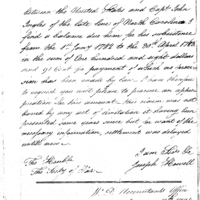 between the United States and Capt. John
Ingles of the late line of North Carolina I
find a balance due him for his subsistance
from the 1st Jany 1782 to the 30th April 1783
in the sum of One hundred and eight dollars
and 48/90 for payment of which no provi
sion has been made by law. I am therefore
to request you will please to procure an appro
priation for his amount. This claim was not
barred by any act of limitation it having been
presented some years since but for want of the
necessary information settlement was delayed
until now.
I am Sir &c
The Honble
Joseph Howell
The Secty of War
W. D. Accountants Office